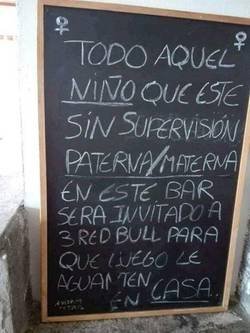 TODO AQUEL
NIÑO QUE ESTE
SIN SUPERVISIÓN
PATERNA/MATERNA
EN ESTE BAR
SERA INVITADO A
3 RED BULL PARA
QUE LUEGO LE
AGUANTEN
EN CASA..